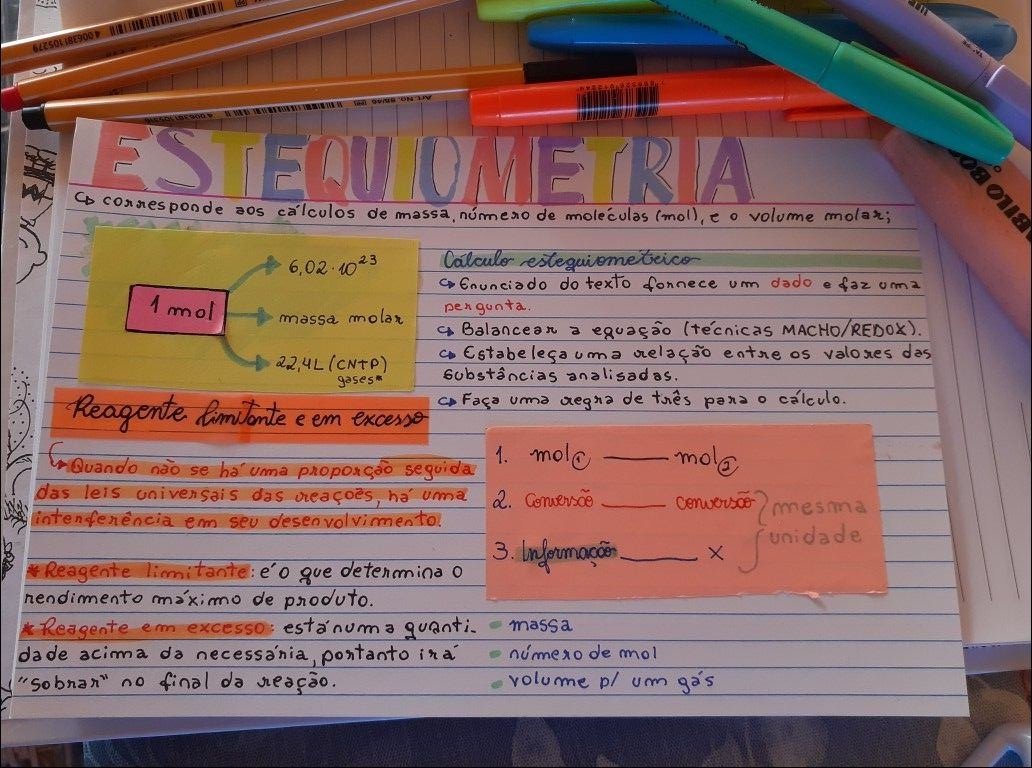 ESTEQUIOMETRIA
↳ corresponde aos cálculos de massa, número de moléculas (mol), e o volume molar;
1 mol
6,02 · 10²³
massa molar
22,4L (CNTP)
gases*
Cálculo estequiométrico
↳ Enunciado do texto fornece um dado e faz uma
pergunta.
↳ Balancear a equação (técnicas MACHO/REDOX).
↳ Estabeleça uma relação entre os valores das
substâncias analisadas.
↳ Faça uma regra de três para o cálculo.
Reagente limitante e em excesso
↳ Quando não se há uma proporção seguida
das leis universais das reações, há uma
interferência em seu desenvolvimento.
* Reagente limitante: é o que determina o
rendimento máximo de produto.
* Reagente em excesso: está numa quanti-
dade acima da necessária, portanto irá
"sobrar" no final da reação.
1. mol① ____ mol②
2. Conversão ____ conversão
3. Informação ____ X
mesma
unidade
massa
número de mol
volume p/ um gás